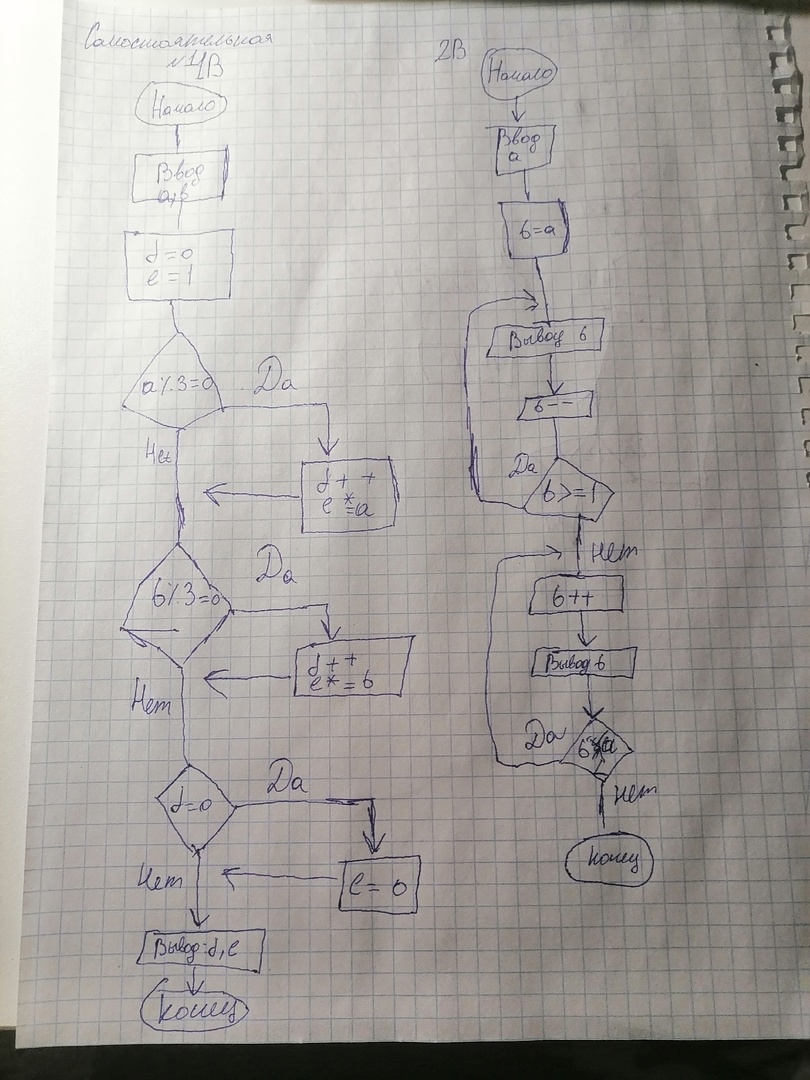 Самостоятельная
№1 1В
Начало
Ввод
a, b
d=0
e=1
a%3=0
Да
Нет
d++
e*=a
b%3=0
Да
d++
e*=b
Нет
d=0
Да
Нет
e=0
Вывод d, e
Конец
2В
Начало
Ввод
a
b=a
Вывод b
b--
Да
b>=1
Нет
b++
Вывод b
Да
Нет
Конец